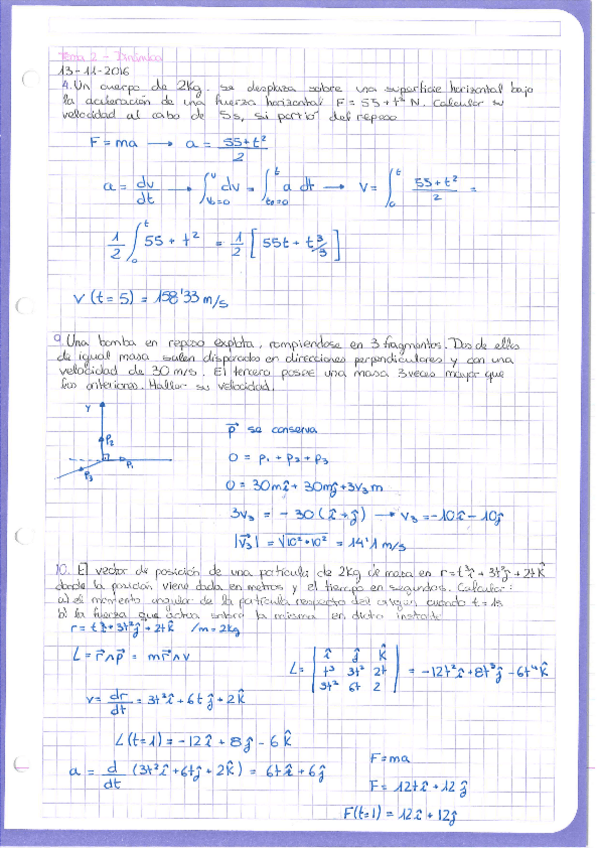 Tema 2 - Dinámica
13-11-2016
4. Un cuerpo de 2Kg. se desplaza sobre una superficie horizontal bajo
la aceleración de una fuerza horizontal F = 55 + t² N. Calcular su
velocidad al cabo de 5s, si partió del reposo
F = ma → a = (55 + t²)/2
a = dv/dt → ∫_{v₀=0}^{v} dv = ∫_{t₀=0}^{t} a dt → v = ∫_0^t (55 + t²)/2 =
1/2 ∫_0^t 55 + t² = 1/2 [55t + t³/3]
v (t = 5) = 158'33 m/s
9. Una bomba en reposo explota, rompiendose en 3 fragmentos. Dos de ellos
de igual masa salen disparados en direcciones perpendiculares y con una
velocidad de 30 m/s. El tercero posee una masa 3 veces mayor que
los anteriores. Hallar su velocidad.
Y
P₂
P₁
P₃
p⃗ se conserva
0 = p₁ + p₂ + p₃
0 = 30mî + 30mĵ + 3v₃m
3v₃ = - 30 (î + ĵ) → v₃ = -10î - 10ĵ
|v⃗₃| = √(10² + 10²) = 14'1 m/s
10. El vector de posición de una partícula de 2Kg de masa en r = t³î + 3t²ĵ + 2tk̂
donde la posición viene dada en metros y el tiempo en segundos. Calcular:
a) el momento angular de la partícula respecto del origen cuando t = 1s
b) la fuerza que actua sobre la misma en dicho instante
r = t î + 3t²ĵ + 2tk̂ / m = 2kg
L = r⃗ ∧ p⃗ = m r⃗ ∧ v
L = | î ĵ k̂ |
| t³ 3t² 2t | = -12t²î + 8t³ĵ - 6t⁴k̂
| 3t² 6t 2 |
v = dr/dt = 3t²î + 6tĵ + 2k̂
L (t = 1) = -12î + 8ĵ - 6k̂
a = d/dt (3t²î + 6tĵ + 2k̂) = 6tî + 6ĵ
F = ma
F = 12tî + 12ĵ
F(t=1) = 12î + 12ĵ